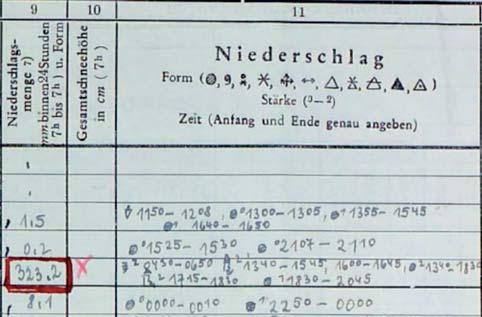 9 10 11
Niederschlags-
menge ⁷)
mm binnen 24 Stunden
(7h bis 7h) u. Form
Gesamtschneehöhe
in cm (7h)
Niederschlag
Form
Stärke (⁰–²)
Zeit (Anfang und Ende genau angeben)
1,5 1150–1208, 1300–1305, 1355–1545
1640–1650
0,2 1525–1530 2107–2110
323.2 0430–0650 1340–1545, 1600–1645, 1340–1830
1715–1830 1830–2045
8,1 0000–0010 2250–0000